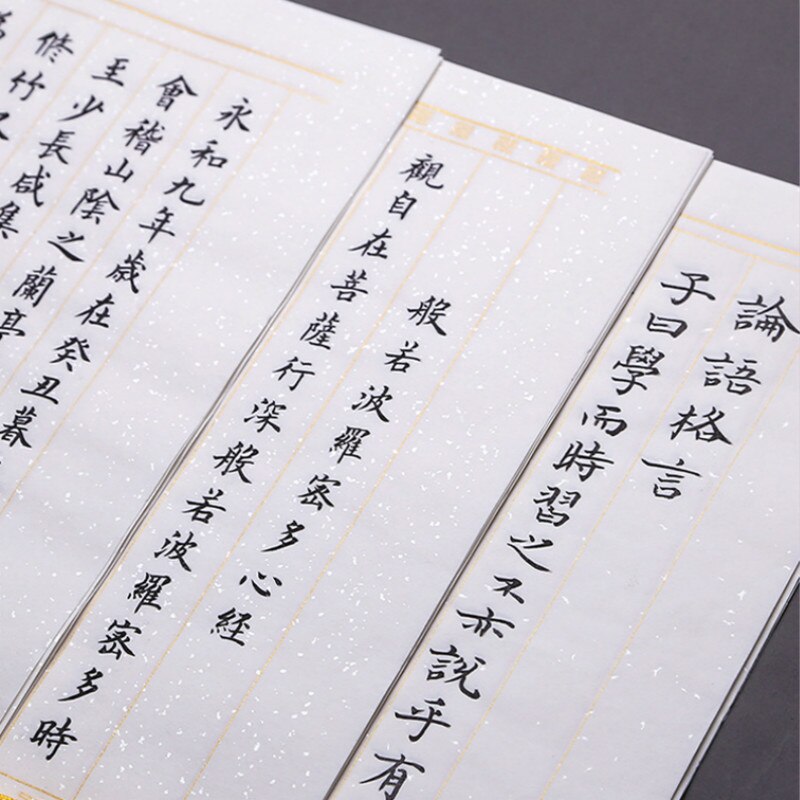 論語格言
子曰學而時習之不亦說乎有
般若波羅密多心經
觀自在菩薩行深般若波羅密多時
永和九年歲在癸丑暮
會稽山陰之蘭亭
至少長咸集
修竹又